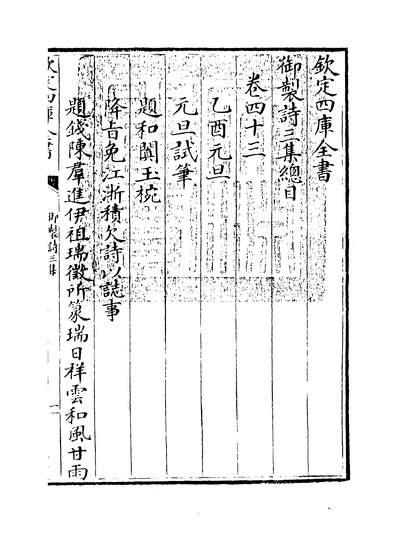 欽定四庫全書
御製詩三集總目
卷四十三
乙酉元旦
元旦試筆
題和闐玉椀
降旨免江浙積欠詩以誌事
題錢陳羣進伊祖瑞徵所篆瑞日祥雲和風甘雨
欽定四庫全書
御製詩三集
一